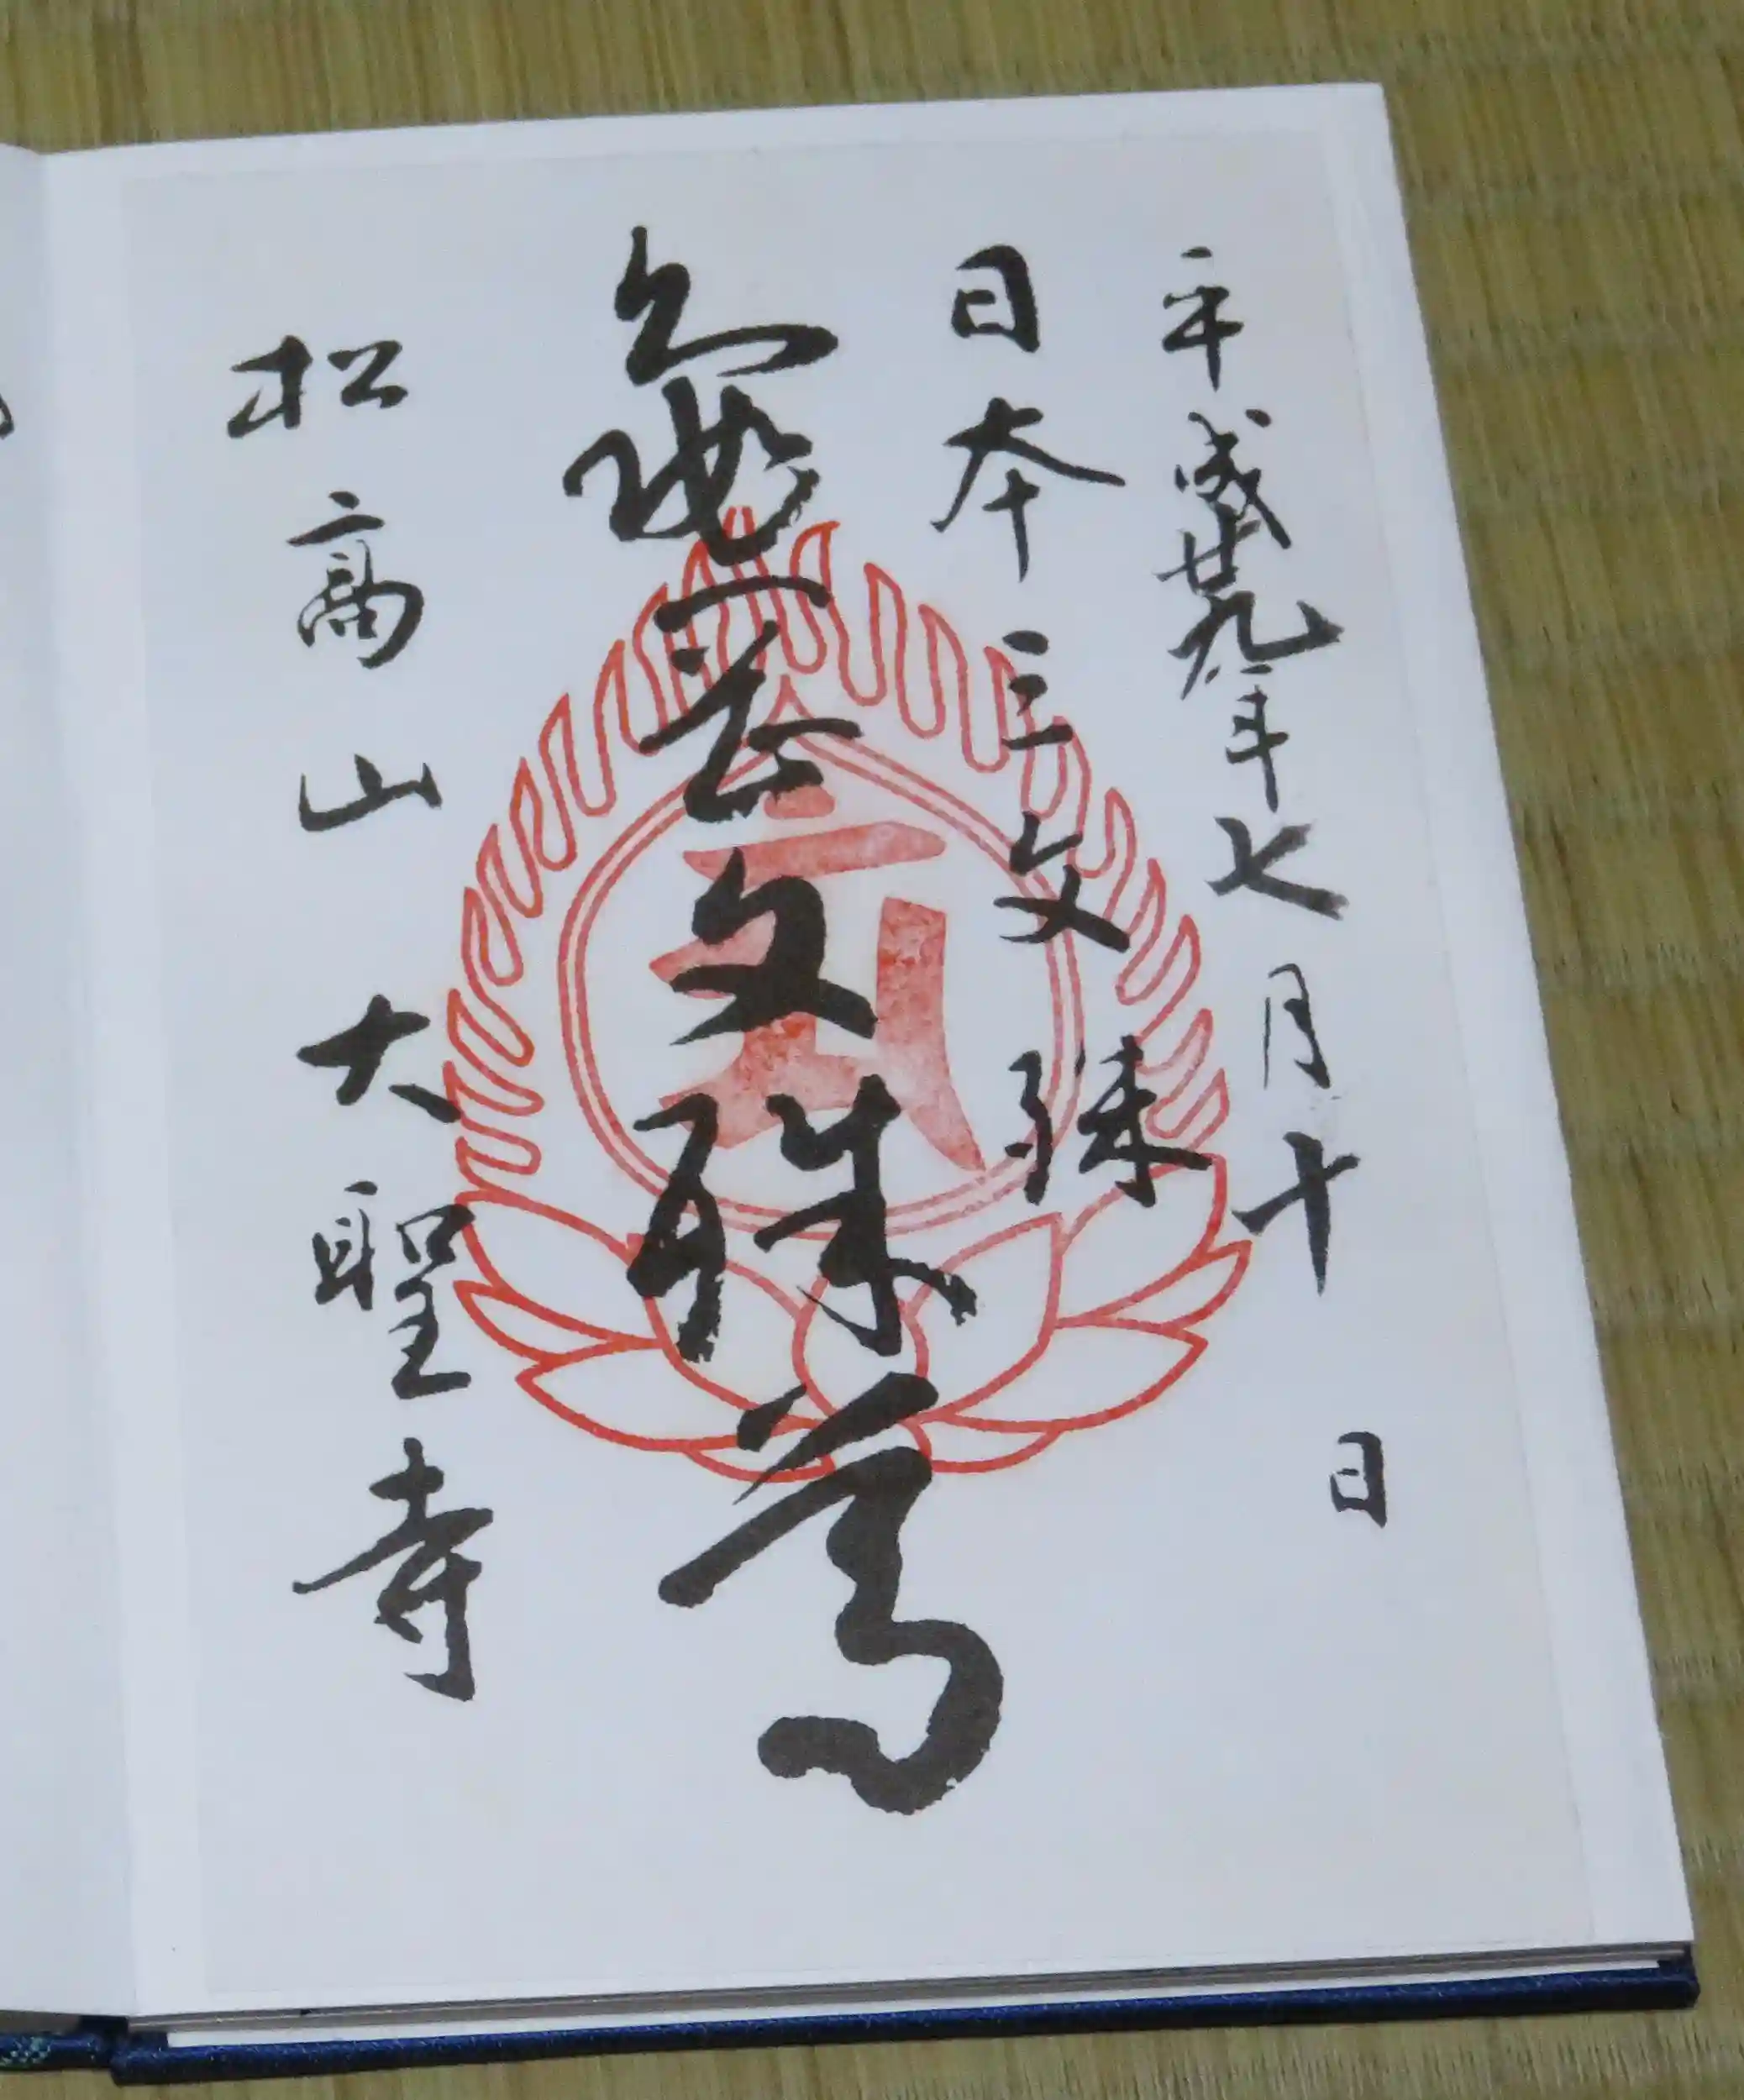 平成廿九年七月十日
日本三文殊
亀岡文殊尊
松高山大聖寺